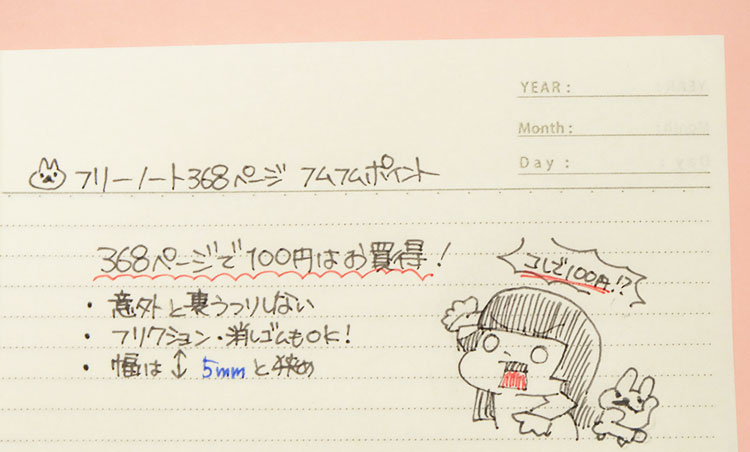 YEAR :
Month :
Day :
フリーノート368ページ フムフムポイント
368ページで100円はお買得!
コレで100円!?
・意外と裏うつりしない
・フリクション・消しゴムもOK!
・幅は↕5mmと狭め